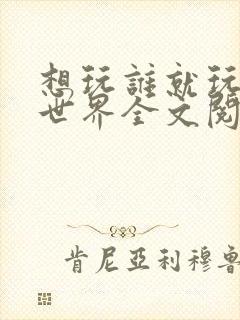 想玩誰就玩
世界全文閱
肯尼亞利穆魯